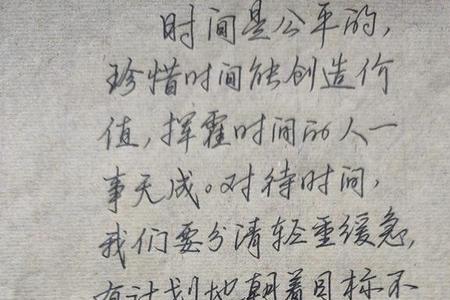 时间是公平的,
珍惜时间能创造价
值,挥霍时间的人一
事无成。对待时间,
我们要分清轻重缓急,
有计划地朝着目标不